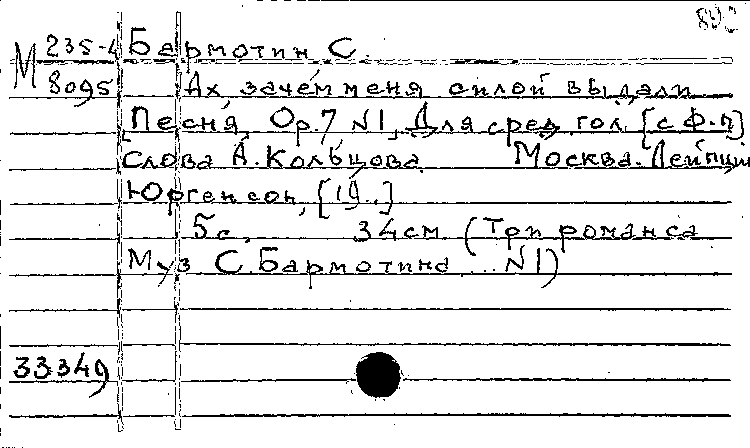 М 235-4 Бармотин С.
8095 Ах, зачем меня силой выдали
Песня, Ор.7 N1, Для сред. гол. [с ф-п]
Слова А. Кольцова. Москва. Лейпциг
Юргенсон, [19..]
5с. 34см (Три романса
Муз С. Бармотина ... N1)
33349